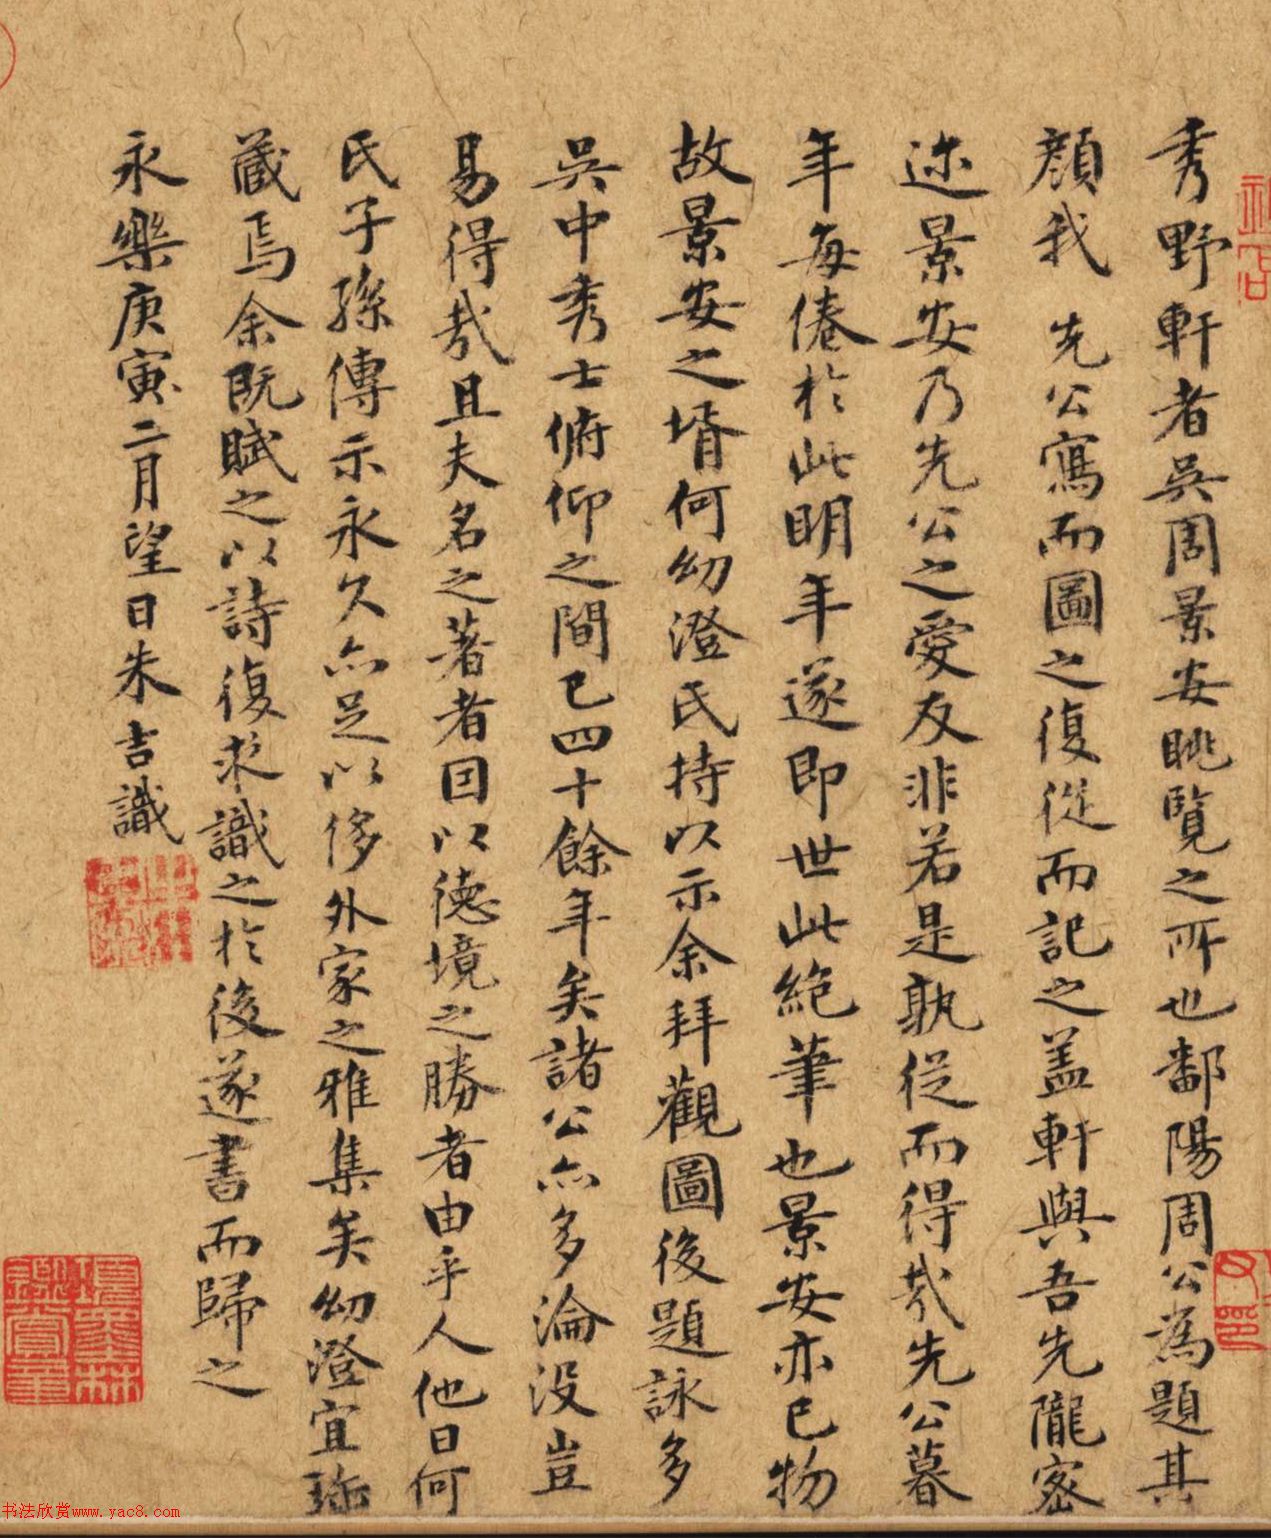 秀野軒者吳周景安眺覽之所也鄱陽周公為題其
顏我 先公寫而圖之復從而記之盖軒與吾先隴密
迩景安乃先公之愛友非若是孰從而得哉先公暮
年每倦於此明年遂即世此絶筆也景安亦已物
故景安之壻何幼澄氏持以示余拜觀圖後題詠多
吳中秀士俯仰之間已四十餘年矣諸公亦多淪没豈
易得哉且夫名之著者因以德境之勝者由乎人他日何
氏子孫傳示永久亦足以侈外家之雅集矣幼澄宜珎
藏焉余既賦之以詩復求識之於後遂書而歸之
永樂庚寅二月望日朱吉識
項墨林鑑賞章
书法欣赏www.yac8.com